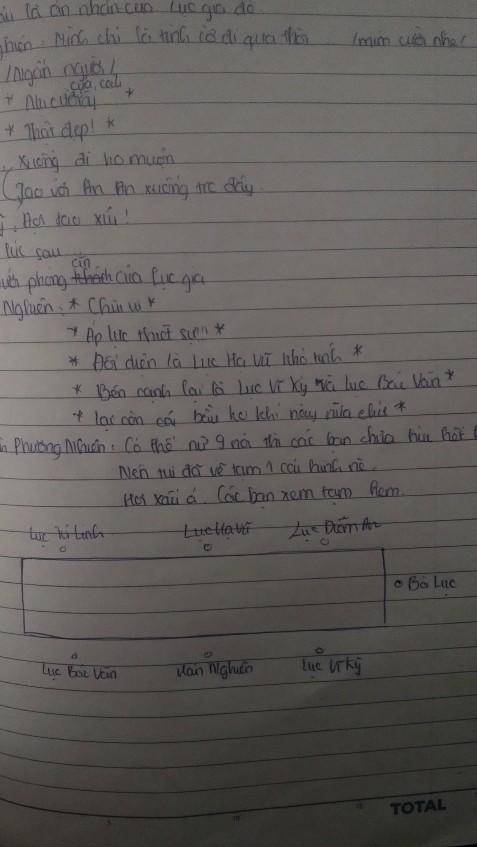 là ân nhân của Lục gia đó
Nghiên: Mình chỉ là tình cờ đi qua thôi /mỉm cười nhẹ/
/Ngẩn người/
* Nụ cười của cậu ấy *
* Thật đẹp! *
Xuống đi ko muộn
(Tao với An An xuống trc đây
Đợi tao xíu!
lúc sau
phòng ăn của Lục gia
Nghiên: * Chừi ui *
* Áp lực thiệt sự!! *
* Đối diện là Lục Hạ Vũ khó tính *
* Bên cạnh lại là Lục Vĩ Kỳ và Lục Bác Văn *
* lạc còn cái bầu ko khí này nữa chứ *
Phương Nghiên: Có thể nữ 9 nói thì các bạn chưa hiểu hết
Nên tui đã vẽ tạm 1 cái hình nè
Hơi xấu á. Các bạn xem tạm
Lục Hạ Vũ Lục Diễm An
Bà Lục
Lục Bác Văn Hàn Nghiên Lục Vĩ Kỳ
TOTAL